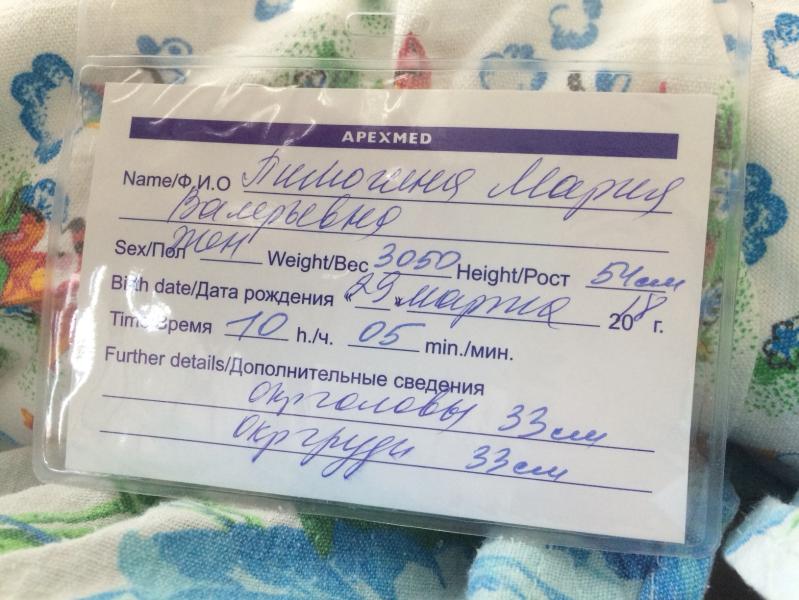 APEXMED
Name/Ф.И.О Тимогина Мария
Валерьевна
Sex/Пол жен Weight/Вес 3050 Height/Рост 54см
Birth date/Дата рождения «29» марта 2018 г.
Time/Время 10 h./ч. 05 min./мин.
Further details/Дополнительные сведения
окр головы 33см
окр груди 33см